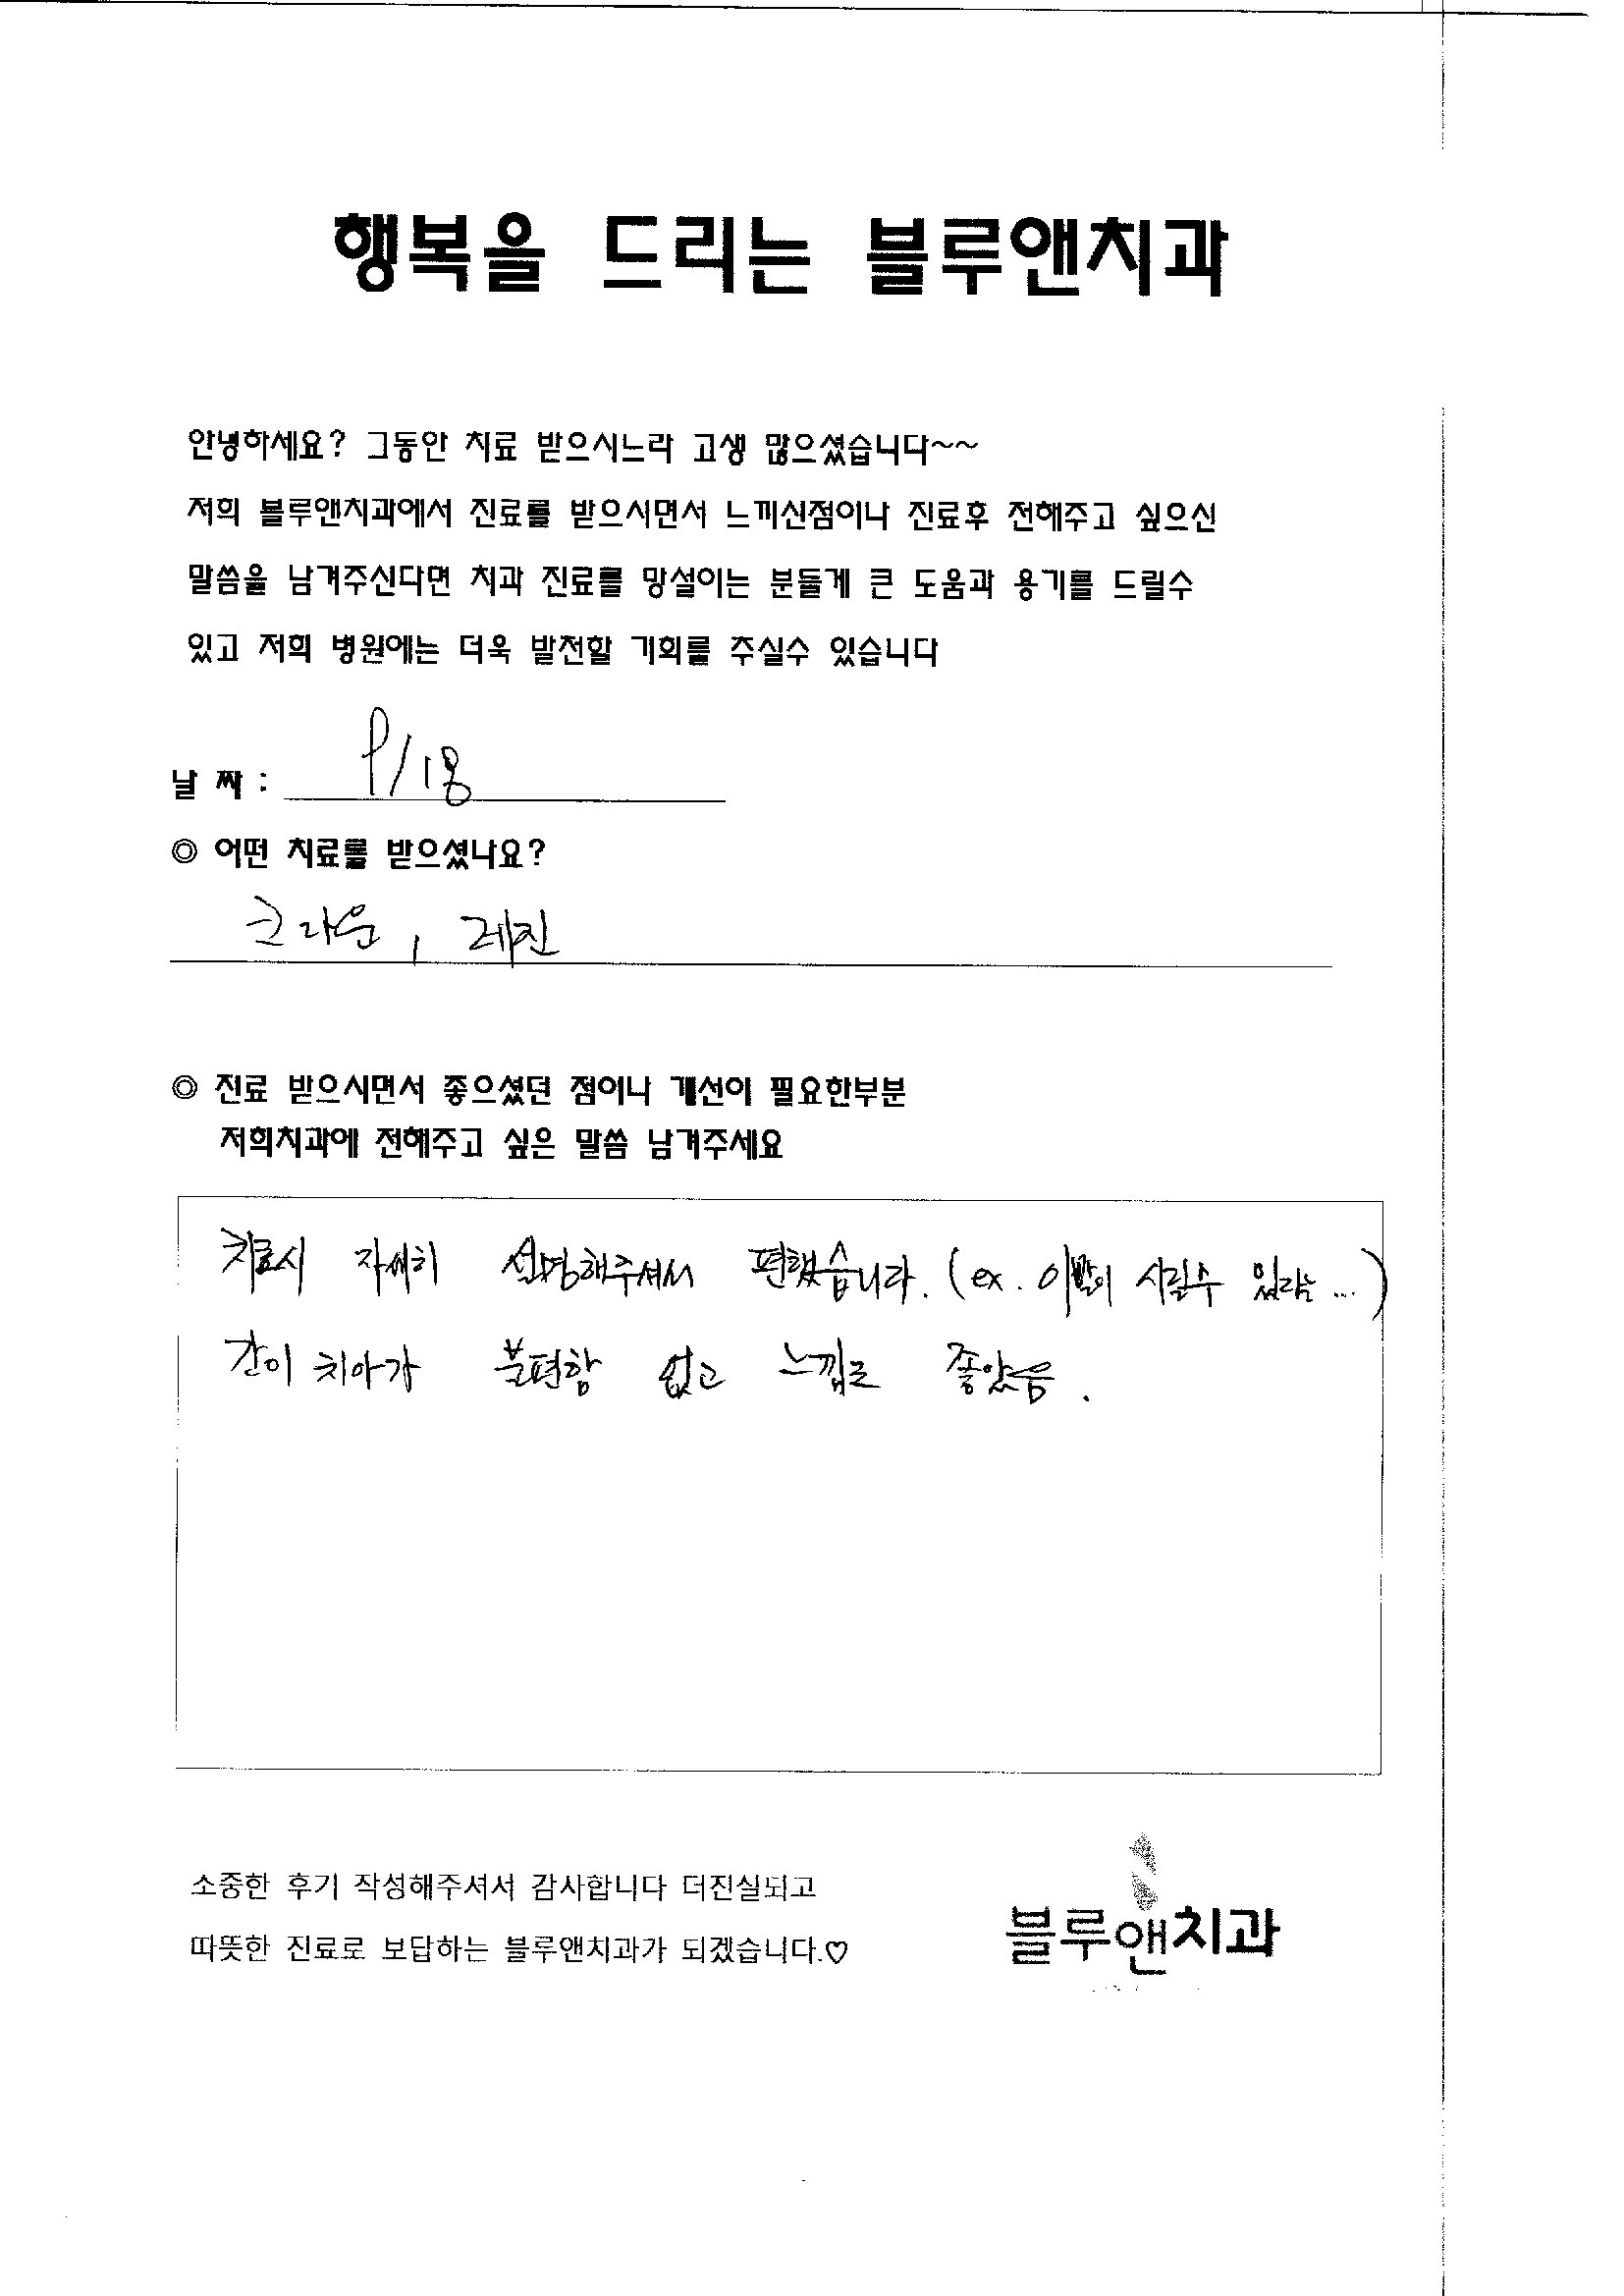 행복을 드리는 블루앤치과
안녕하세요? 그동안 치료 받으시느라 고생 많으셨습니다~~
저희 블루앤치과에서 진료를 받으시면서 느끼신점이나 진료후 전해주고 싶으신
말씀을 남겨주신다면 치과 진료를 망설이는 분들게 큰 도움과 용기를 드릴수
있고 저희 병원에는 더욱 발전할 기회를 주실수 있습니다
날 짜 : /18
◎ 어떤 치료를 받으셨나요?
크라운, 레진
◎ 진료 받으시면서 좋으셨던 점이나 개선이 필요한부분
저희치과에 전해주고 싶은 말씀 남겨주세요
치료시 자세히 설명해주셔서 편했습니다. (ex. 이빨이 시릴수 있다는 ...)
간이 치아가 불편함 없고 느낌도 좋았음.
소중한 후기 작성해주셔서 감사합니다 더진실되고
따뜻한 진료로 보답하는 블루앤치과가 되겠습니다.♡
블루앤치과